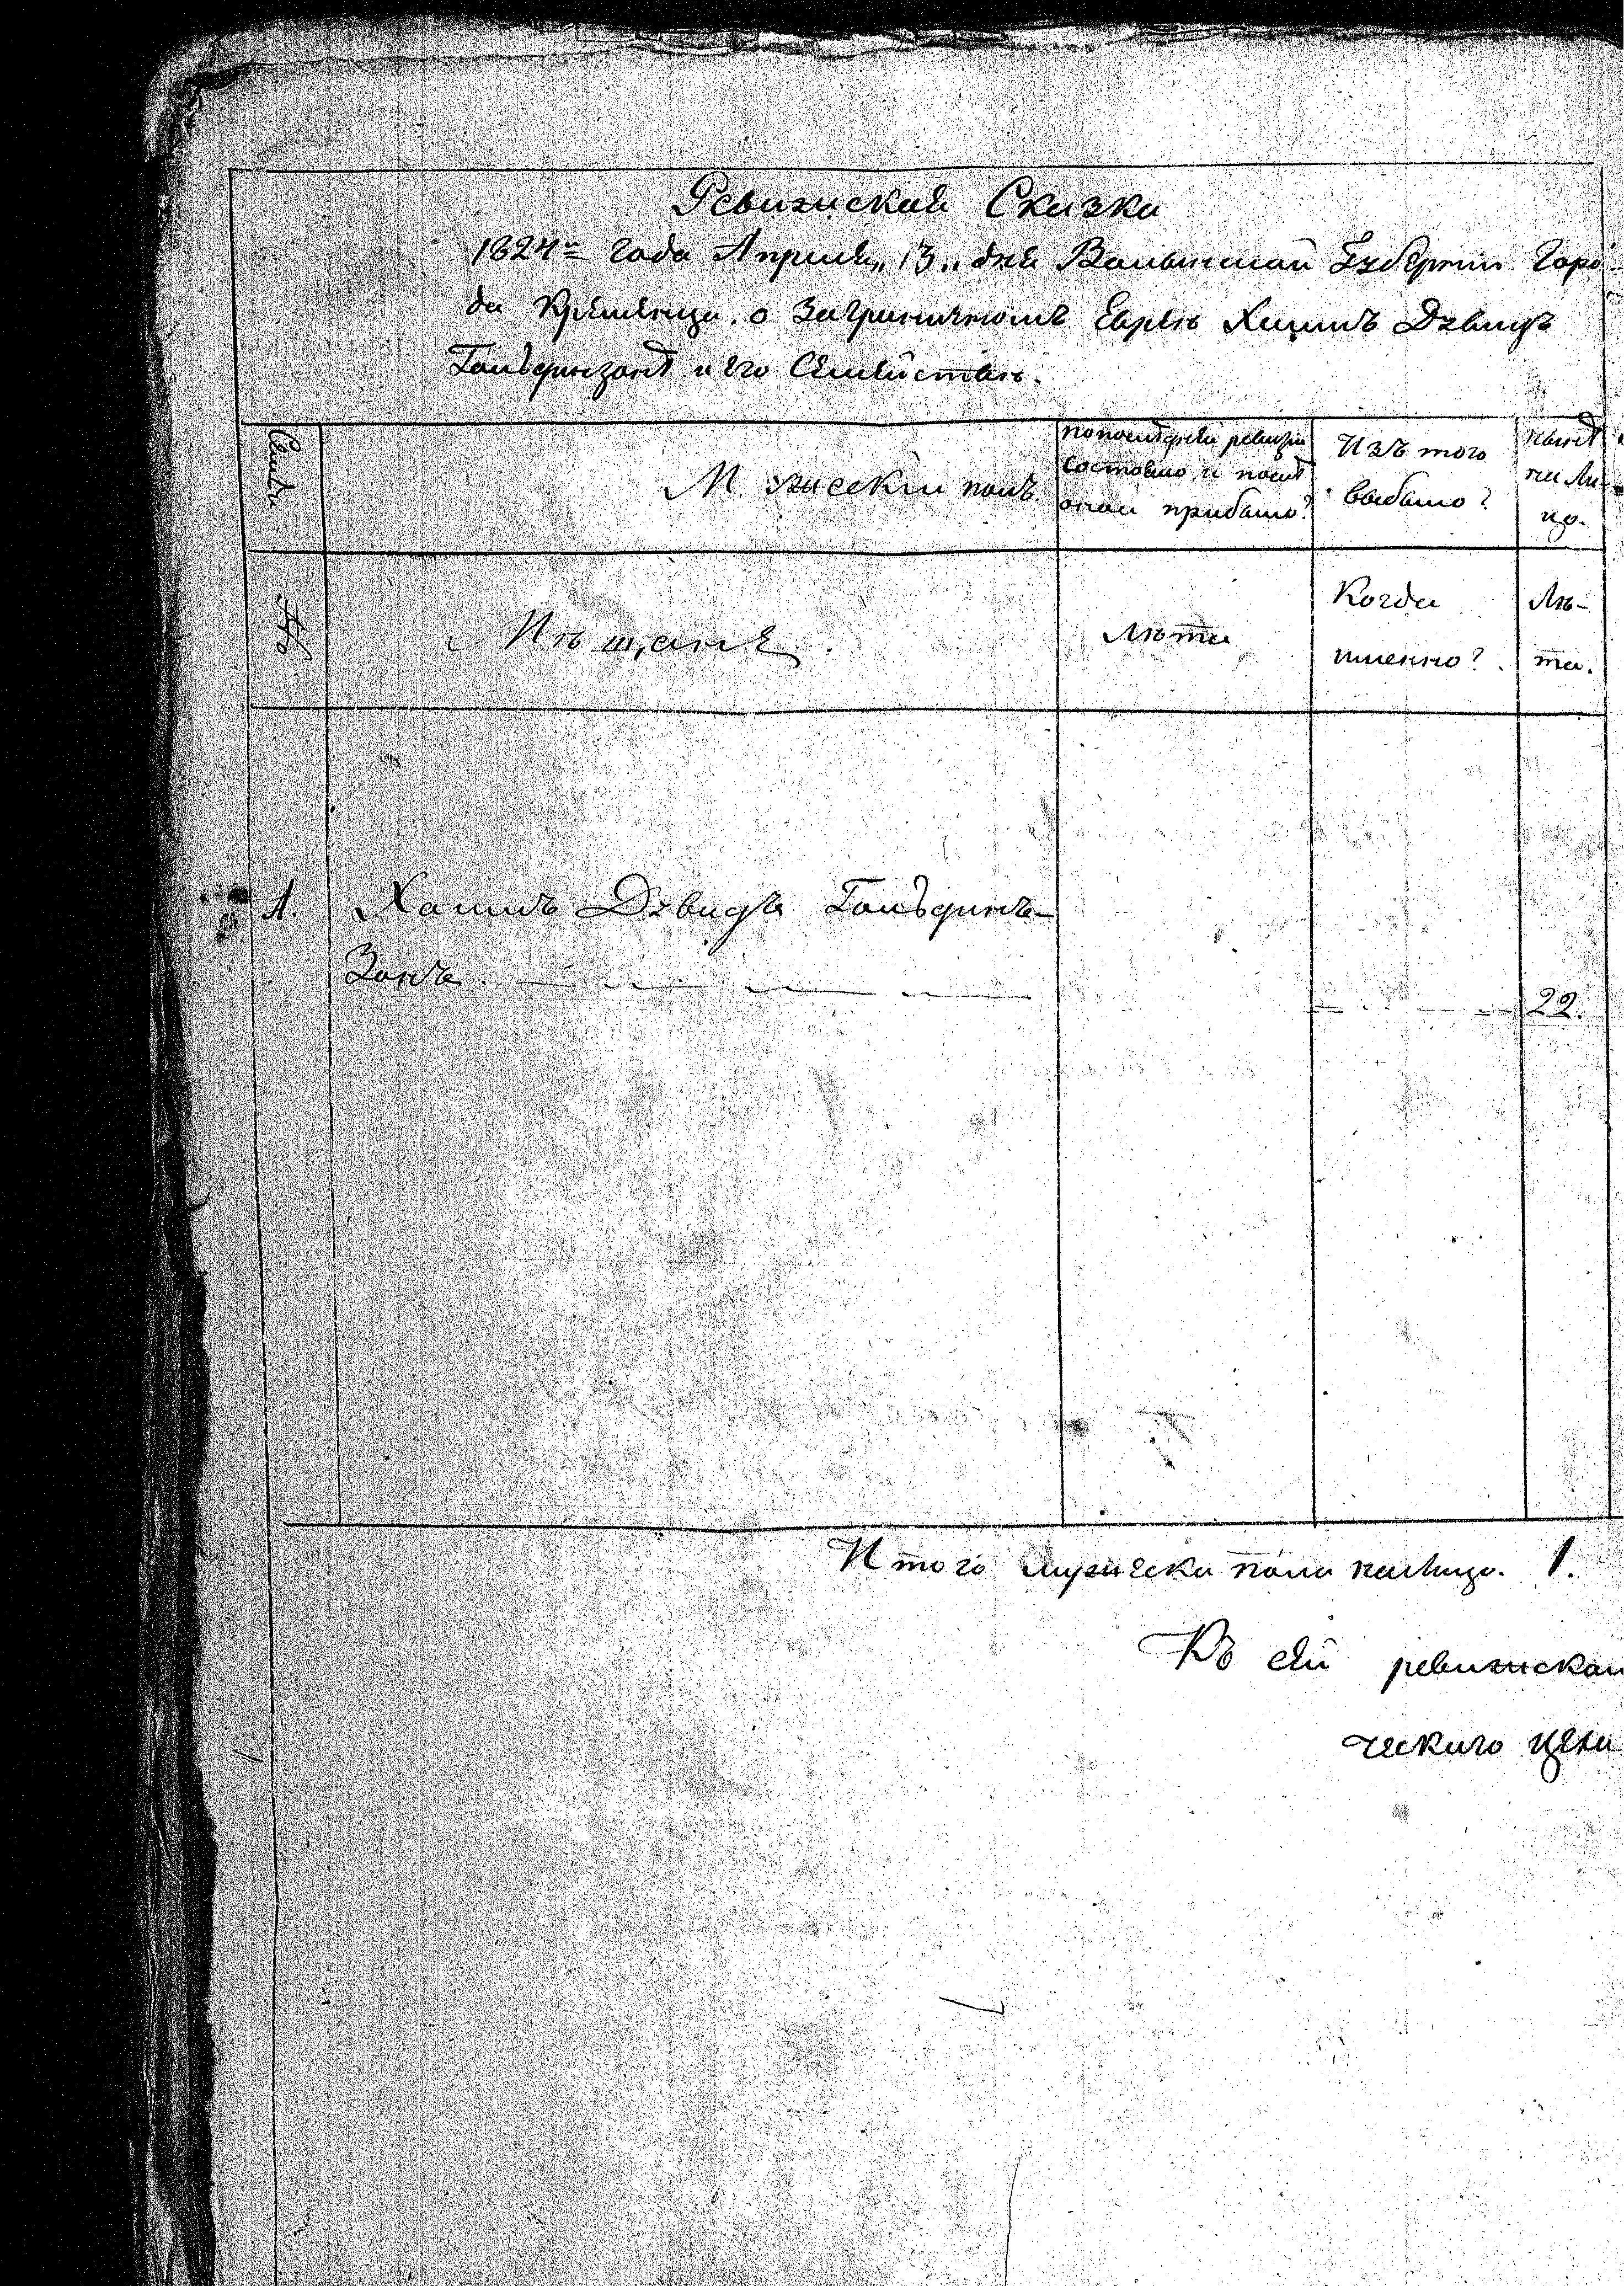 Ревижская Сказка
1824го года Апреля „13„ дня Волынской Губернии Горо-
да Кременца о Заграничномъ Еврею Хаимъ Дэвидъ
Гольдинзонѣ и его Семействѣ.
Семьи
Мужескій полъ
По последней ревизіи состояло и послѣ оной прибыло?
Изъ того выбыло?
Нынѣ на Лицо.
№
Мѣщанѣ
Лѣта
Когда именно?
Лѣта.
1. Хаимъ Дэвидъ Гольдинъ-
Зонъ. 22.
Итого мужеска пола налицо. 1.
Къ сей ревижской
ческаго цена